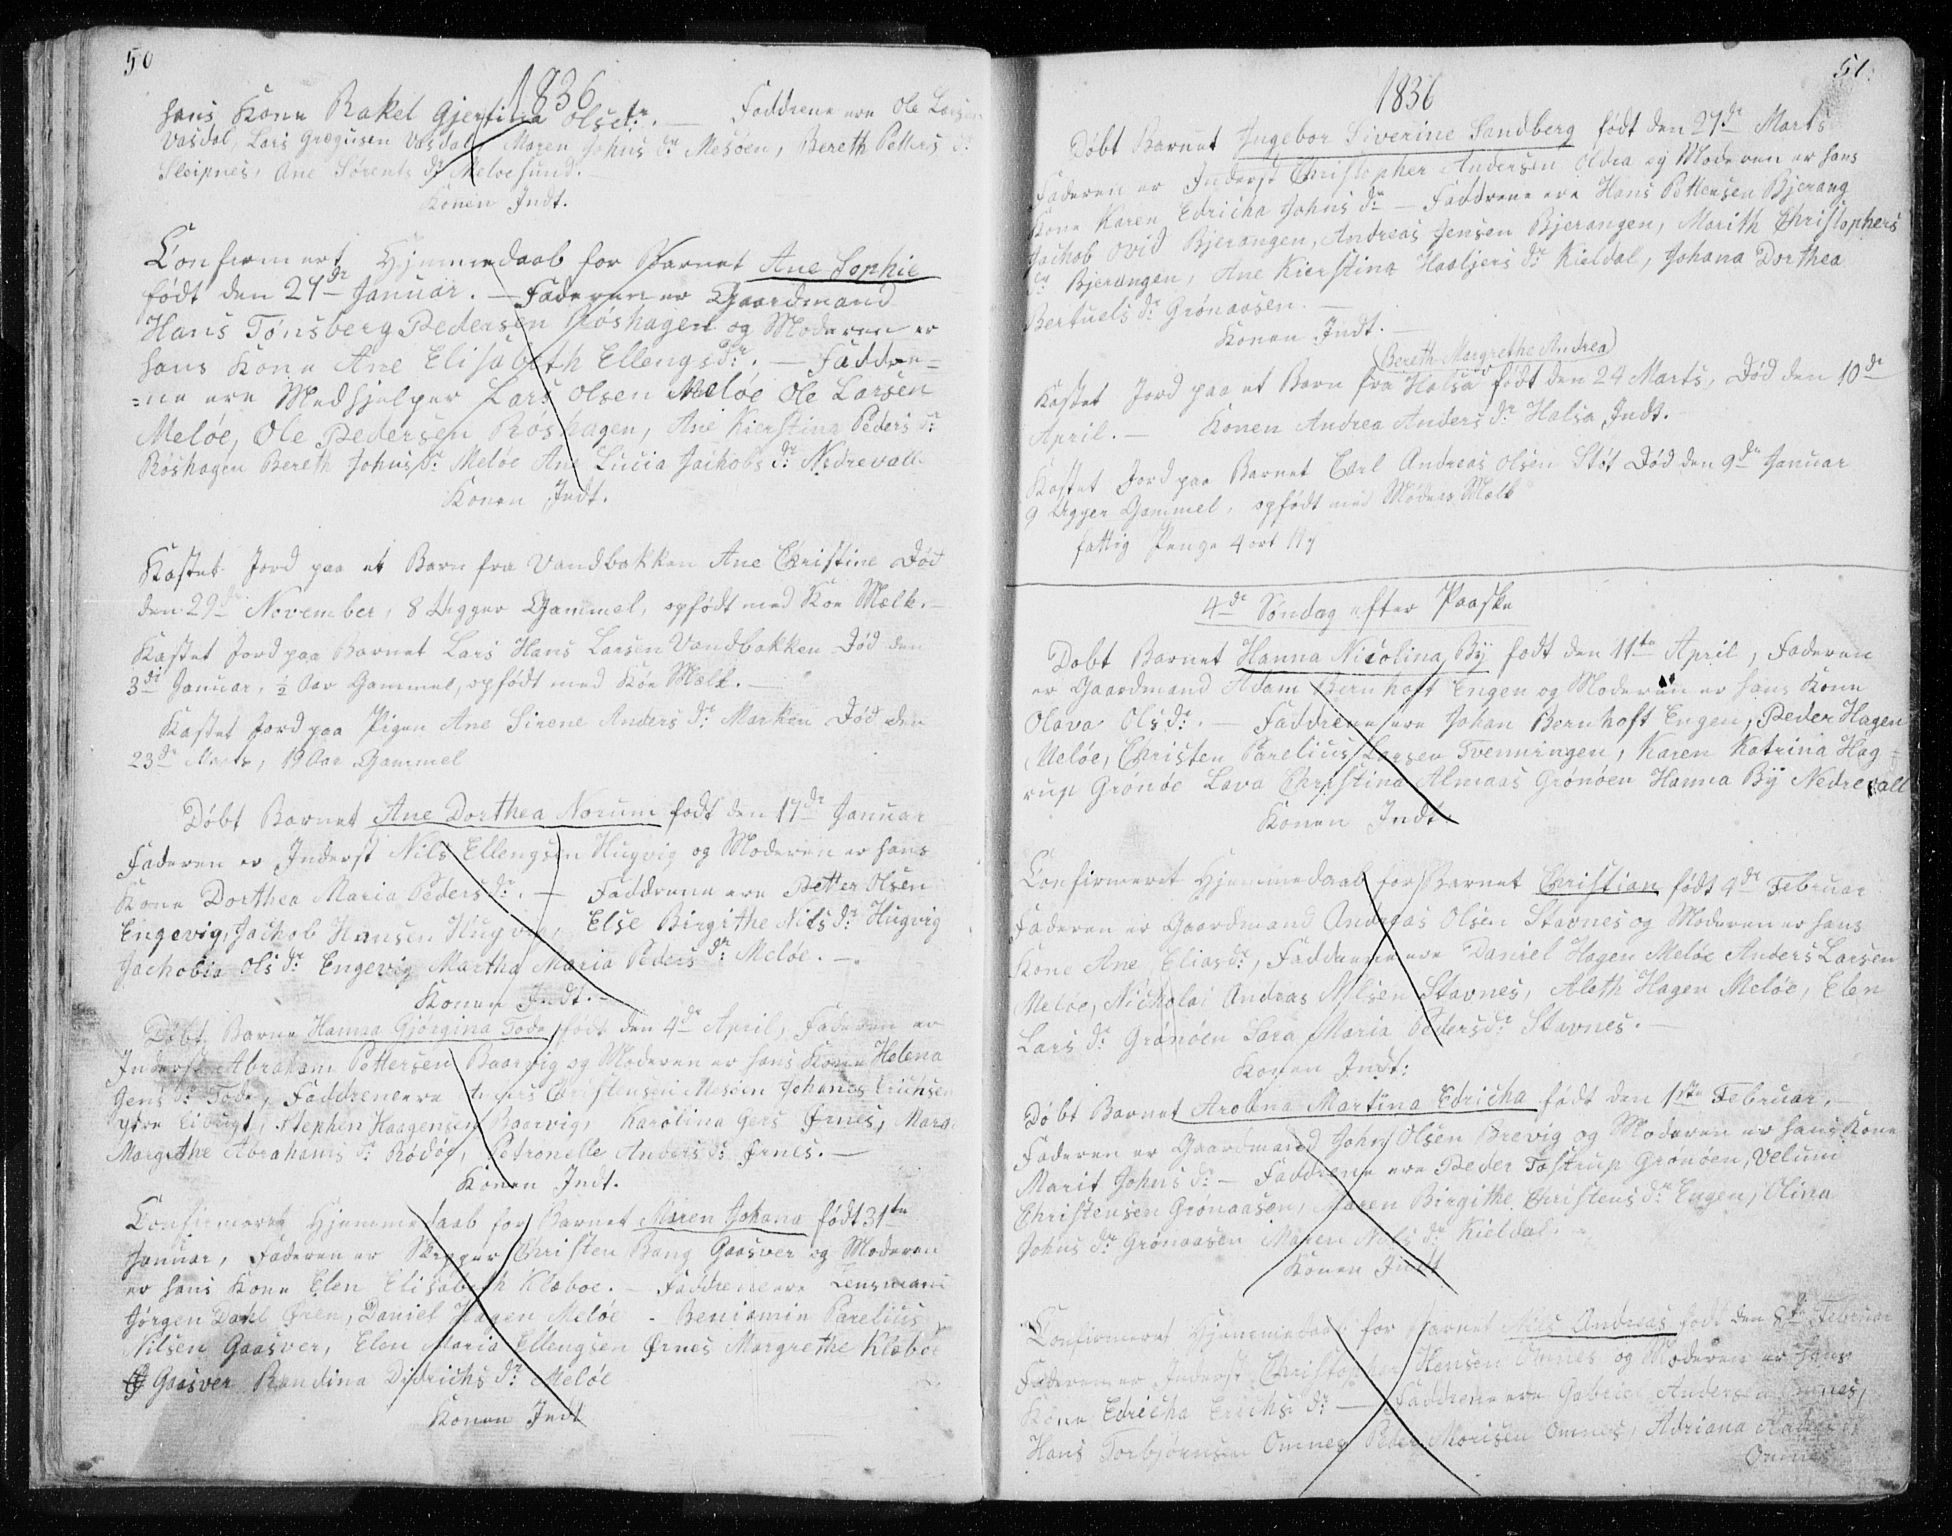 50
1836
hans Kone Rakel Gjertina Olsdr. — Faddrene ere Ole Larsen
Vasdal, Lars Gregusen Vasdal, Maren Johns dr Mesøen, Bereth Petters dr
Sleipnes, Ane Sørents dr Meloesund. —
Konen Indt.
Confirmert Hjemmedaab for Barnet Ane Sophie
født den 27de Januar. — Faderen er Gaardmand
Hans Tønsberg Pedersen Røshagen og Moderen er
hans Kone Ane Elisabeth Ellengsdr. — Faddre=
=ne ere Medhjelper Lars Olsen Meløe Ole Larsen
Meløe, Ole Pedersen Røshagen, Ane Kierstina Peders dr
Røshagen Bereth Johns dr Meløe Ane Lucia Jachobs dr Nedrevall
Konen Indt.
Kastet Jord paa et Barn fra Vandbakken Ane Christine Død
den 29de November, 8 Uger Gammel, opfødt med Koe Mælk. —
Kastet Jord paa Barnet Lars Hans Larsen Vandbakken Død den
3di Januar, ½ Aar Gammel, opfødt med Koe Mælk. —
Kastet Jord paa Pigen Ane Sirene Anders dr Marken Død den
23de Marts, 19 Aar Gammel
Døbt Barnet Ane Dorthea Norum født den 17de Januar
Faderen er Inderst Nils Ellengsen Hugvig og Moderen er hans
Kone Dorthea Maria Pedersdr. — Faddrene ere Petter Olsen
Engevig, Jachob Hansen Hugvig, Else Birgithe Nils dr Hugvig
Jachobia Ols dr Engevig Martha Maria Peders dr Meløe. —
Konen Indt. —
Døbt Barne Hanna Gjørgina Tode født den 4de April, Faderen er
Inderst Abraham Pettersen Baarvig og Moderen er hans Kone Helena
Jens dr Tode, Faddrene ere Anders Christensen Mesøen Johanes Erichsen
ytre Eibugt, Stephen Haagensen Baarvig, Karolina Gers Ørnes, Mare
Margrethe Abrahams dr Rødøe, Petronelle Anders dr Ørnes. —
Konen Indt.
Confirmeret Hjemmedaab for Barnet Maren Johana født 31te
Januar, Faderen er Skipper Christen Bang Gaasver og Moderen
er hans Kone Elen Elisabeth Klæboe. — Faddrene ere Lensmand
Jørgen Dahl Øren, Daniel Hagen Meløe - Beniamin Parelius
Nilsen Gaasver, Elen Maria Ellengsen Ørnes Margrethe Klæboe
Gaasver Randina Didrichs dr Meløe
Konen Indt
51.
1836
Døbt Barnet Ingebor Siverine Sandberg født den 27de Marts
Faderen er Inderst Christopher Andersen Oldra og Moderen er hans
Kone Karen Edricha Johns dr — Faddrene ere Hans Pettersen Bjerang
Jachob Ovid Bjerangen, Andreas Jensen Bjerangen, Marith Christophers
dr Bjerangen, Ane Kierstina Haaljers dr Kieldal, Johana Dorthea
Bertuels dr Grønaasen. —
Konen Indt. —
(Bereth Margrethe Andrea)
Kastet Jord paa et Barn fra Halsa født den 24 Marts, Død den 10de
April. — Konen Andrea Anders dr Halsa Indt. —
Kastet Jord paa Barnet Carl Andreas Olsen Støt Død den 9de Januar
9 Uger Gammel, opfødt med Moders Mælk
fattig Penge 4 ort
4de Søndag efter Paaske
Døbt Barnet Hanna Nicolina By født den 11te April, Faderen
er Gaardmand Adam Bernhoft Engen og Moderen er hans Kone
Olava Olsdr. — Faddrene ere Johan Bernhoft Engen, Peder Hagen
Meløe, Christen Parelius Larsen Tvenningen, Karen Katrina Hag=
rup Grønøe Lava Christina Almaas Grønøen Hanna By Nedrevall
Konen Indt.
Confirmeret Hjemmedaab for Barnet Christian født 4de Februar
Faderen er Gaardmand Andreas Olsen Stavnes og Moderen er hans
Kone Ane Eliasdr, Faddrene ere Daniel Hagen Meløe Anders Larsen
Meløe, Nickolai Andras Nilsen Stavnes, Aleth Hagen Meløe, Elen
Lars dr Grønøen Sara Maria Pedersdr Stavnes. —
Konen Indt:
Døbt Barnet Arolina Martina Edricha født den 1ste Februar, —
Faderen er Gaardmand John Olsen Brevig og Moderen er hans Kone
Marit Johns dr — Faddrene ere Peder Tostrup Grønøen, Velum
Christensen Grønaasen, Maren Birgithe Christens dr Engen, Olina
Johns dr Grønaasen Maren Nils dr Kieldal. —
Konen Indt
Confirmeret Hjemmedaab for Barnet Nils Andreas født den 8de Februar
Faderen er Inderst Christopher Hensen Omnes og Moderen er hans
Kone Edricha Erichs dr — Faddrene ere Gabriel Andersen Omnes,
Hans Torbjørnsen Omnes Peder Morisen Omnes, Adriana
Omnes